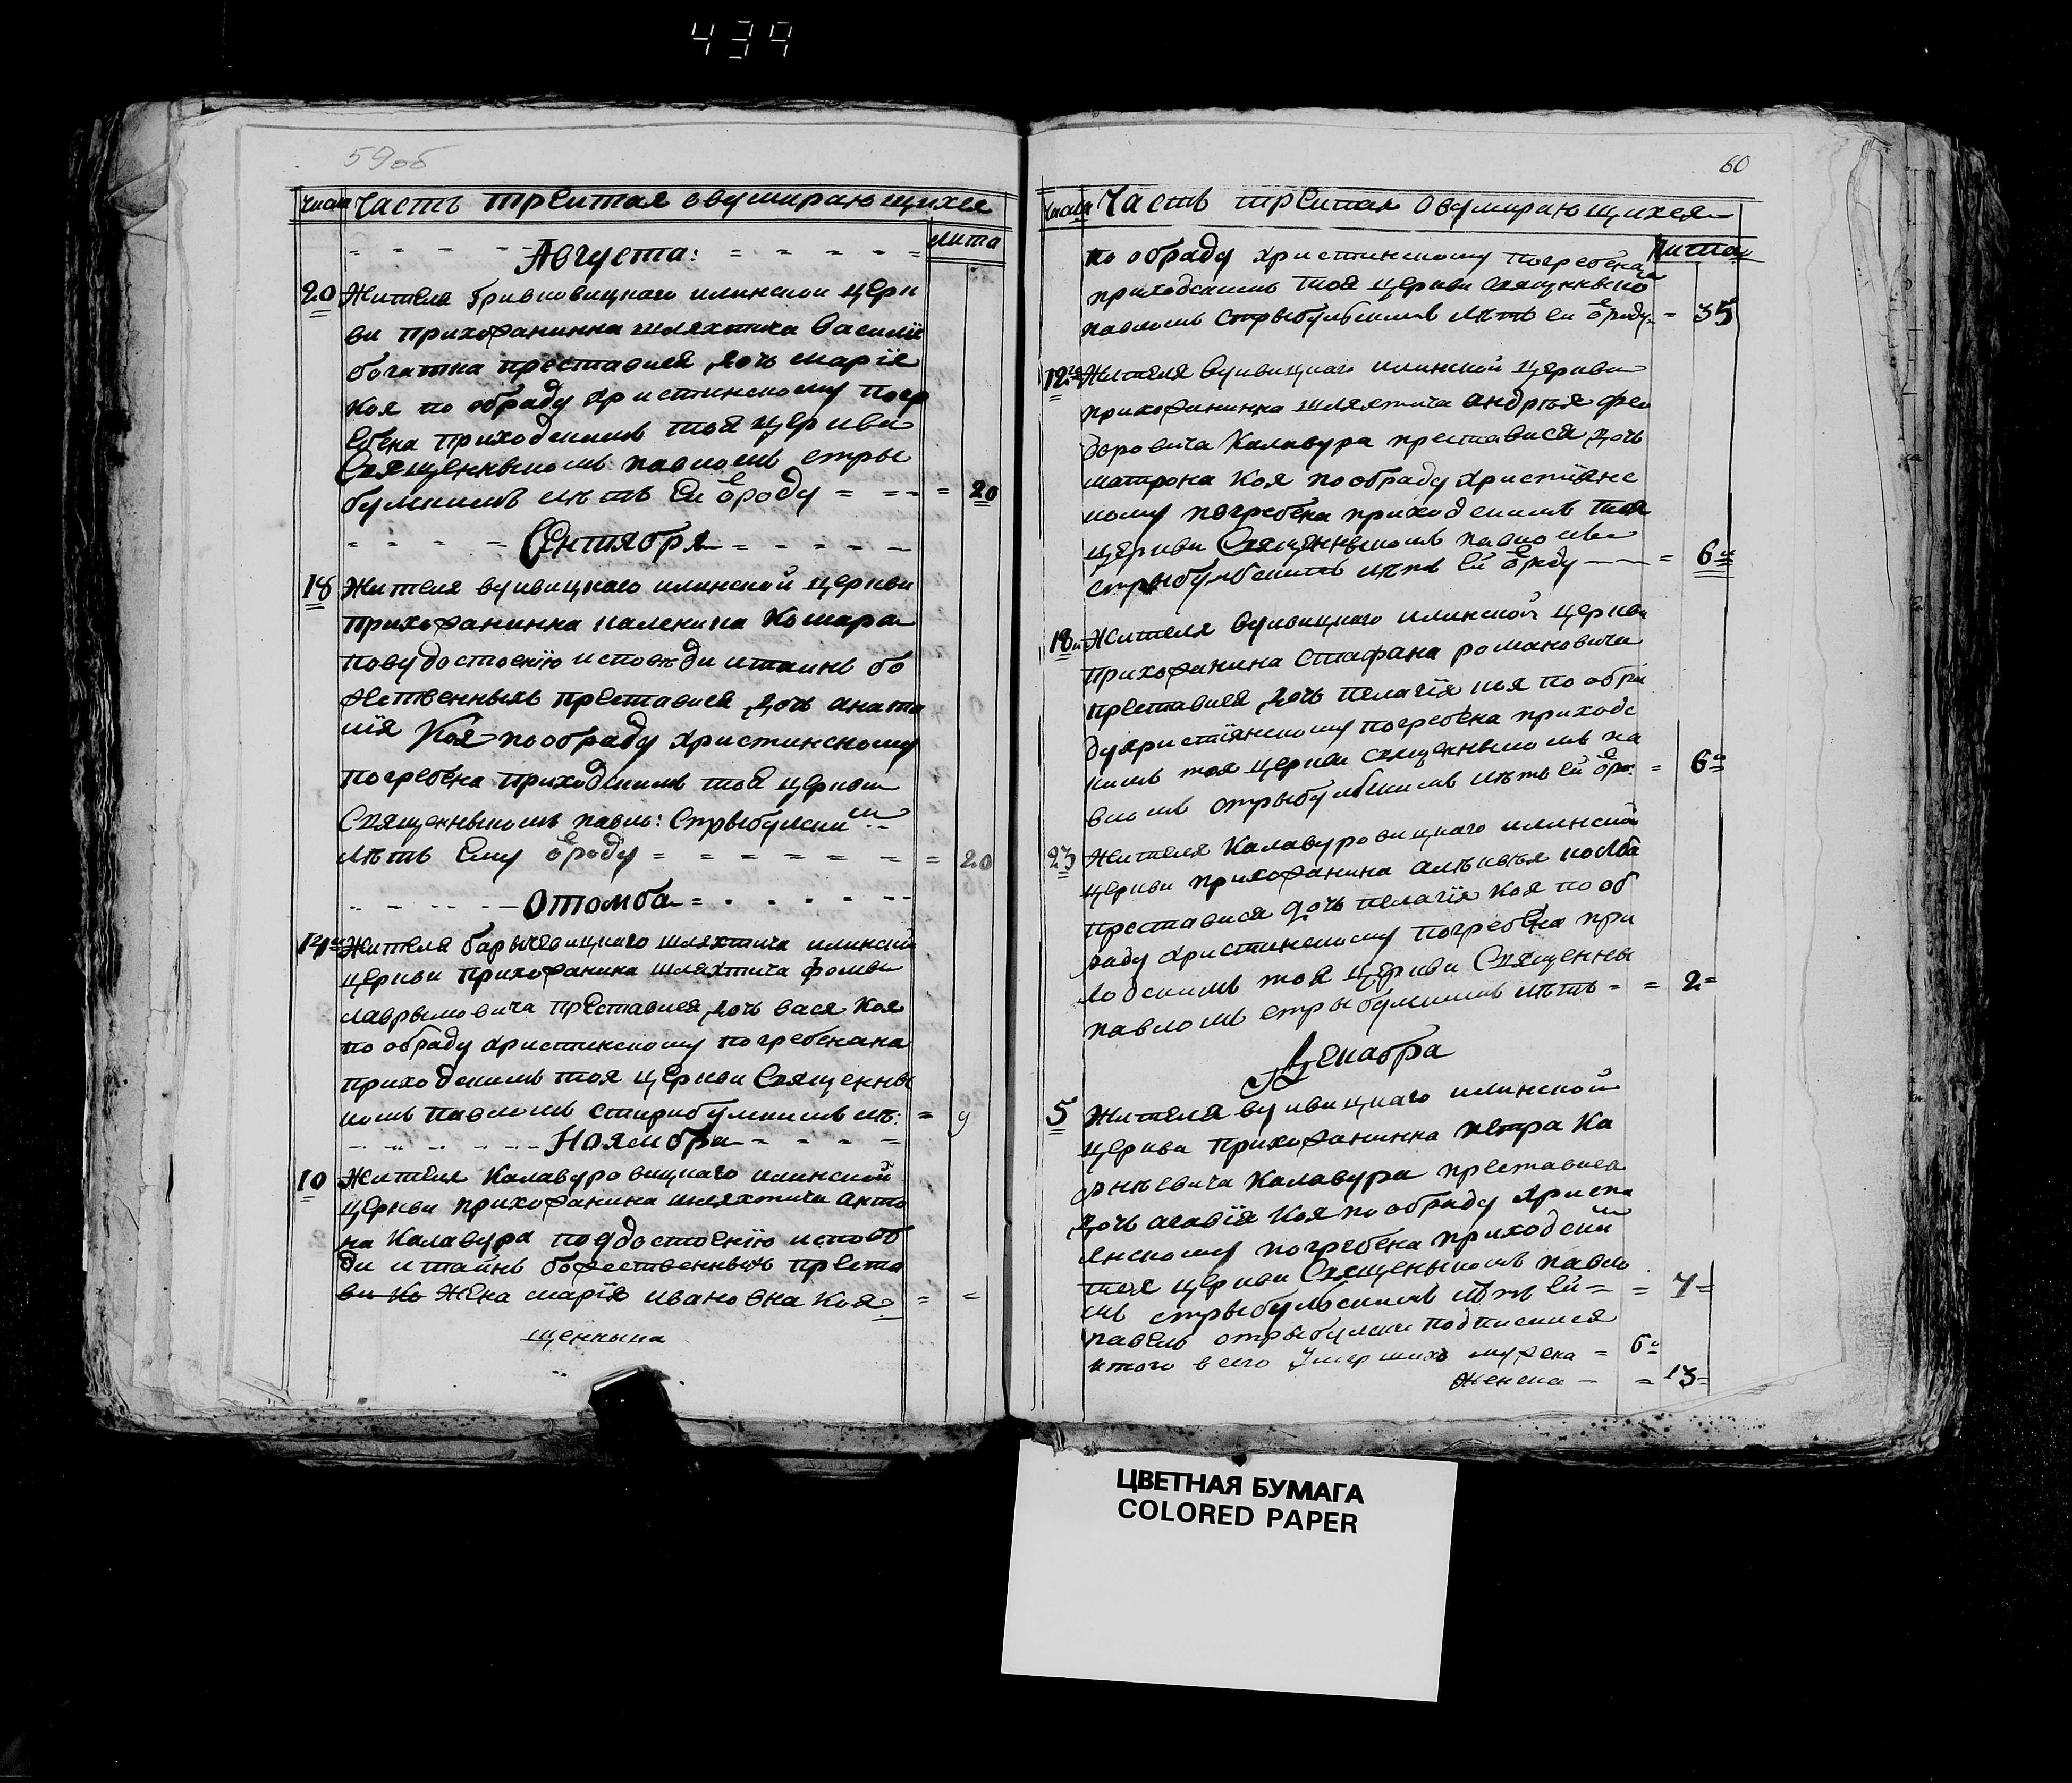 439
59об
числа Часть третиая овумирающихся
лита
Августа:
20 Жителя бривковицкаго илинской церк
ви прихожанинка шляхтича Василїя
богатка преставися дочь марїя
коя по обраду христинскому погр
ебена приходскимъ тоя церкви
Священныкомъ павломъ стры
булскимъ лѣтъ Ей ѿроду = = - = 20
Сентября
18 Жителя вуивицкаго илинской церкви
прихожанинка Комара
повудостоенїю исповѣди итаинъ бо
жественныхъ преставися дочь анаста
сїя Коя пообраду христинскому
погребена приходскимъ тоя церкви
Священныкомъ павло: Стрыбулским
лѣтъ Ему ѿроду = = = = = = = 20
Отомбра
14 Жителя барычевицкаго шляхтича илинской
церкви прихожанина шляхтича фомы
лаврымовича преставися дочь вася Коя
по обраду христинскому погребенана
приходскимъ тоя церкви Священны
комъ павломъ стирибулскимъ лѣ: = 9
Ноямбра
10 Жителя Калавуровицкаго илинской
церкви прихожанина шляхтича анто
на Калавура поудостоенїю исповѣ
ди итаинъ божественныхъ преста
ви ко жена марїя ивановна Коя = =
щенныка
60
числа Часть третиая Овумирающихся
Лита
по обраду христинскому погребена
приходскимъ тоя церкви священныко
павломъ стрыбулскимъ лѣтъ ей ѿроду = 35
12 Жителя вуивицкаго илинской церкви
прихожанинка шляхтича андрѣя фео
доровича Калавура преставися дочь
матрона Коя пообраду христїянс
кому погребена приходскимъ тоя
церкви Священныкомъ павломъ
стрыбулскимъ лѣтъ Ей ѿроду = 6
18 Жителя вуивицкаго илинской церкви
прихожанина Стафана романовича
преставися дочь пелагїя коя по обра
духристїянскому погребена приходс
кимъ тоя церкви священныкомъ па
вломъ стрыбулскимъ лѣтъ Ей ѿро: = 6
23 Жителя Калавуровицкаго илинской
церкви прихожанина алѣкѣя
преставися дочь пелагїя Коя по об
раду христинскому погребена при
ходскимъ тоя церкви Священны
павломъ стрыбулскимъ лѣтъ = = 2 =
Декабра
5 Жителя вуивицкаго илинской
церкви прихожанинка петра Ка
Калавура преставися
дочь агафїя Коя по обраду христи
янскому погребена приходским
тоя церкви Священыкомъ павло
мъ стрыбулскимъ лѣтъ Ей = = 7 =
павелъ стрыбулски подписался
итого всего умершихъ мужска = 6
женска = = 13 =
ЦВЕТНАЯ БУМАГА
COLORED PAPER